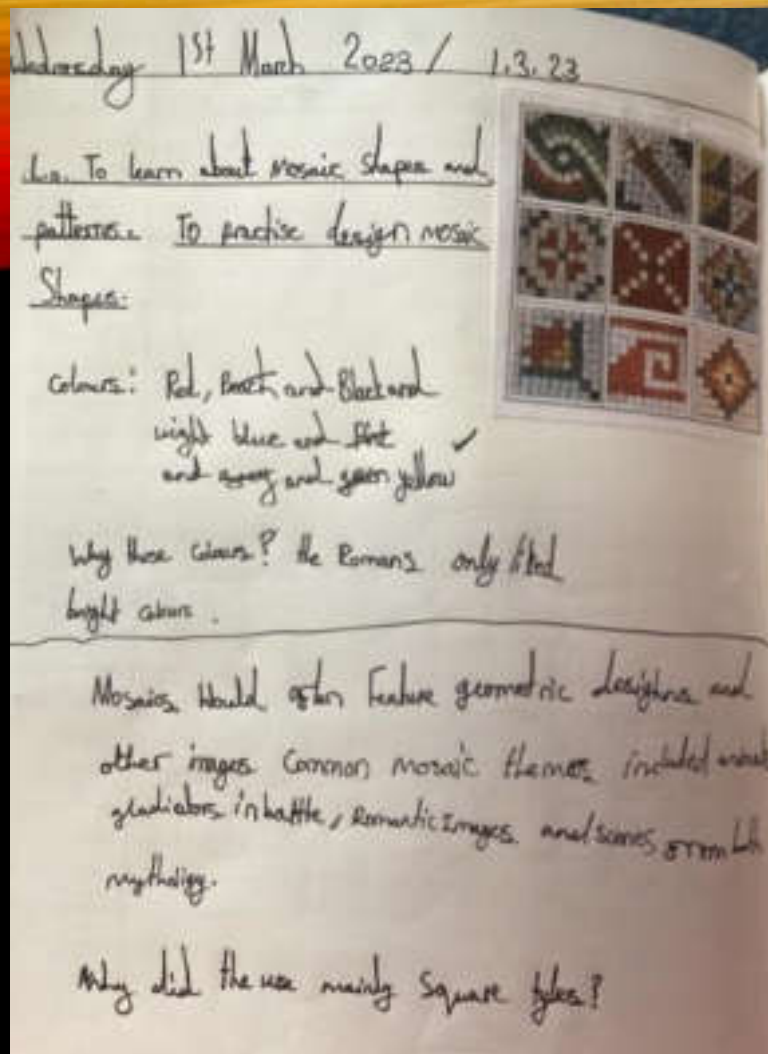 Wednesday 1st March 2023 / 1.3.23
L.o. To learn about mosaic shapes and
patterns. To practise design mosaic
Shapes.
Colours: Red, and Black and
wight blue and
and and green yellow
Why those colours? the Romans only liked
bright colours.
Mosaics Would often Feature geometric desighns and
other images Common mosaic themes included
gladiators in battle, Romantic Images and scenes from
mythology.
Why did the use mainly Square tyles?